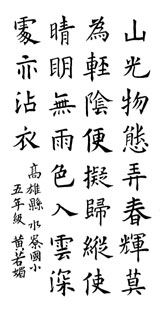 山光物態弄春輝莫
為輕陰便擬歸縱使
晴明無雨色入雲深
處亦沾衣
高雄縣 水寮國小
五年級 黃若媚